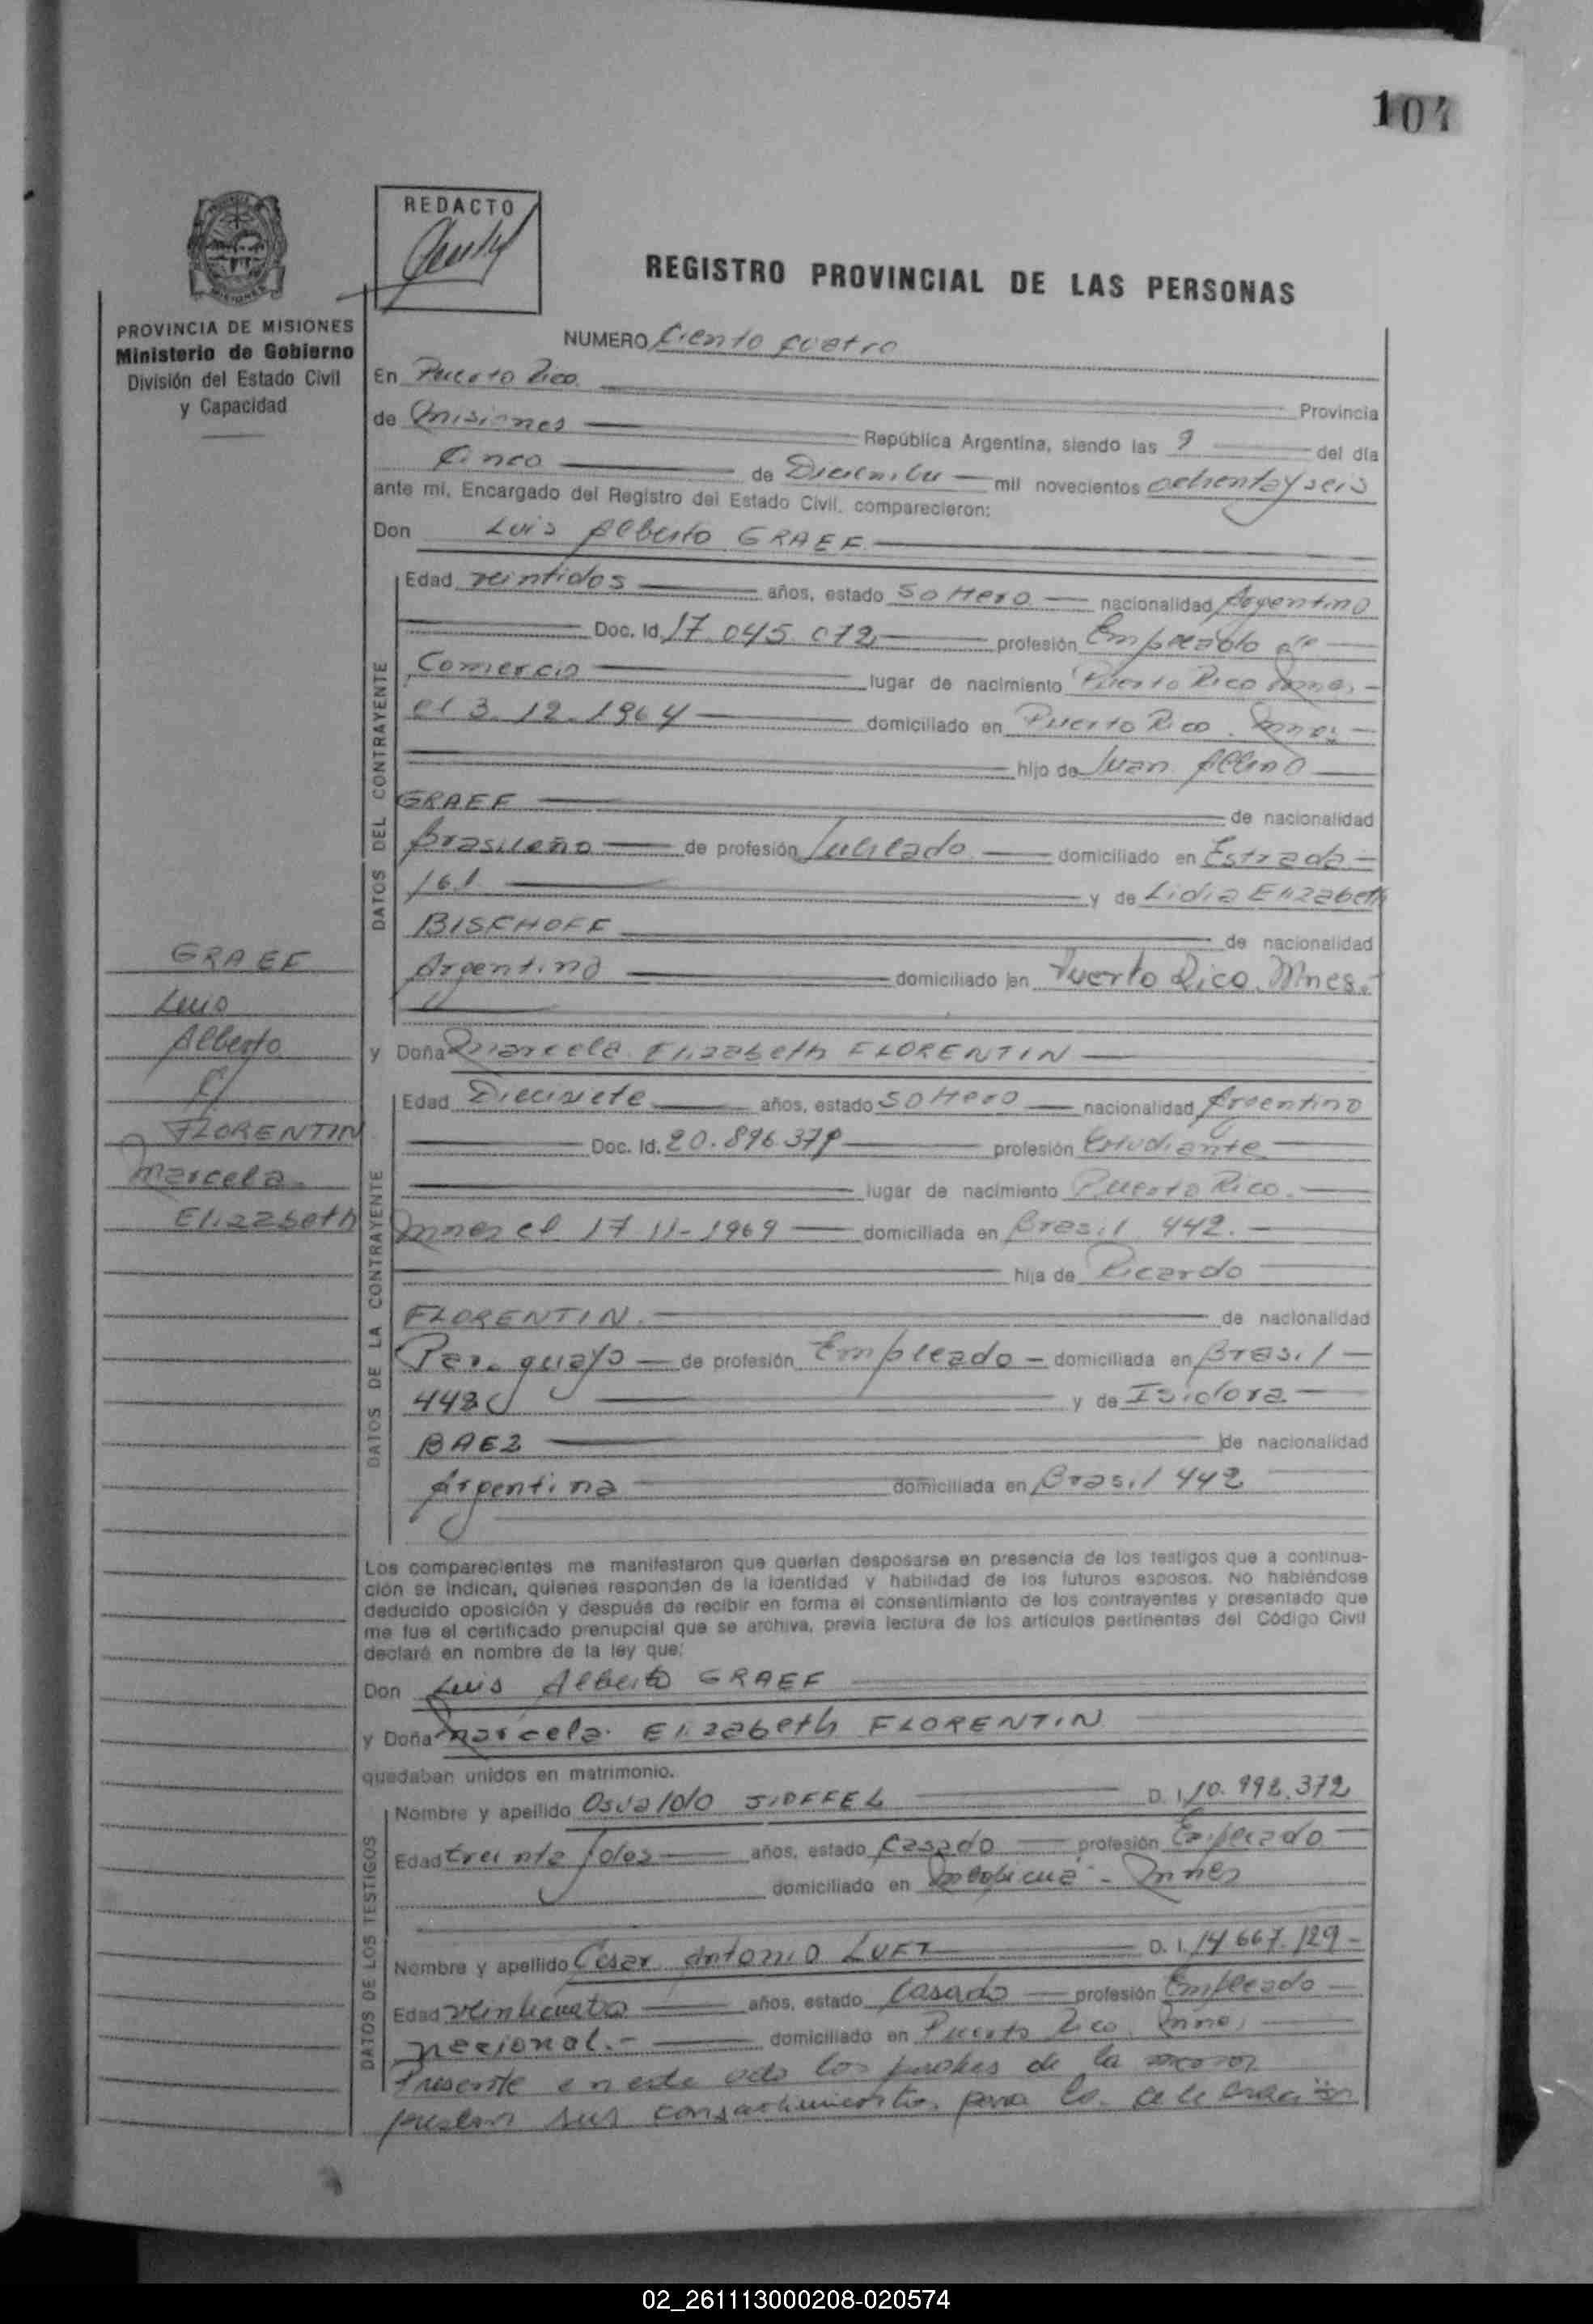 104
REDACTO
REGISTRO PROVINCIAL DE LAS PERSONAS
PROVINCIA DE MISIONES
Ministerio de Gobierno
División del Estado Civil
y Capacidad
NUMERO Ciento cuatro
En Puerto Rico Provincia
de Misiones República Argentina, siendo las 9 del día
Cinco de Diciembre mil novecientos ochentayseis
ante mí, Encargado del Registro del Estado Civil, comparecieron:
Don Luis Alberto GRAEF
DATOS DEL CONTRAYENTE
Edad veintidos años, estado Soltero nacionalidad Argentino
Doc. Id. 17.045.072 profesión Empleado de
Comercio lugar de nacimiento Puerto Rico Mnes
el 3.12.1964 domiciliado en Puerto Rico. Mnes
hijo de Juan Albino
GRAEF de nacionalidad
Brasileño de profesión Jubilado domiciliado en Estrada
161 y de Lidia Elizabeth
BISCHOFF de nacionalidad
Argentina domiciliado en Puerto Rico. Mnes.
GRAEF
Luis
Alberto
c/
FLORENTIN
Marcela
Elizabeth
y Doña Marcela Elizabeth FLORENTIN
DATOS DE LA CONTRAYENTE
Edad Diecisiete años, estado Soltero nacionalidad Argentino
Doc. Id. 20.896.379 profesión Estudiante
lugar de nacimiento Puerto Rico.
Mnes el 17-11-1969 domiciliada en Brasil 442.
hija de Ricardo
FLORENTIN. de nacionalidad
Paraguayo de profesión Empleado domiciliada en Brasil
442 y de Isidora
BAEZ de nacionalidad
Argentina domiciliada en Brasil 442
Los comparecientes me manifestaron que querían desposarse en presencia de los testigos que a continua-
ción se indican, quienes responden de la identidad y habilidad de los futuros esposos. No habiéndose
deducido oposición y después de recibir en forma el consentimiento de los contrayentes y presentado que
me fue el certificado prenupcial que se archiva, previa lectura de los artículos pertinentes del Código Civil
declaré en nombre de la ley que:
Don Luis Alberto GRAEF
y Doña Marcela Elizabeth FLORENTIN
quedaban unidos en matrimonio.
DATOS DE LOS TESTIGOS
Nombre y apellido Osvaldo D. I. 10.992.372
Edad treinta y dos años, estado Casado profesión Empleado
domiciliado en Mnes
Nombre y apellido Cesar Antonio LUFT D. I. 14.667.129
Edad veinticuatro años, estado Casado profesión Empleado
nacional. domiciliado en Puerto Rico. Mnes
Presente en este acto los padres de la menor
prestan sus consentimientos para la celebración
02_261113000208-020574